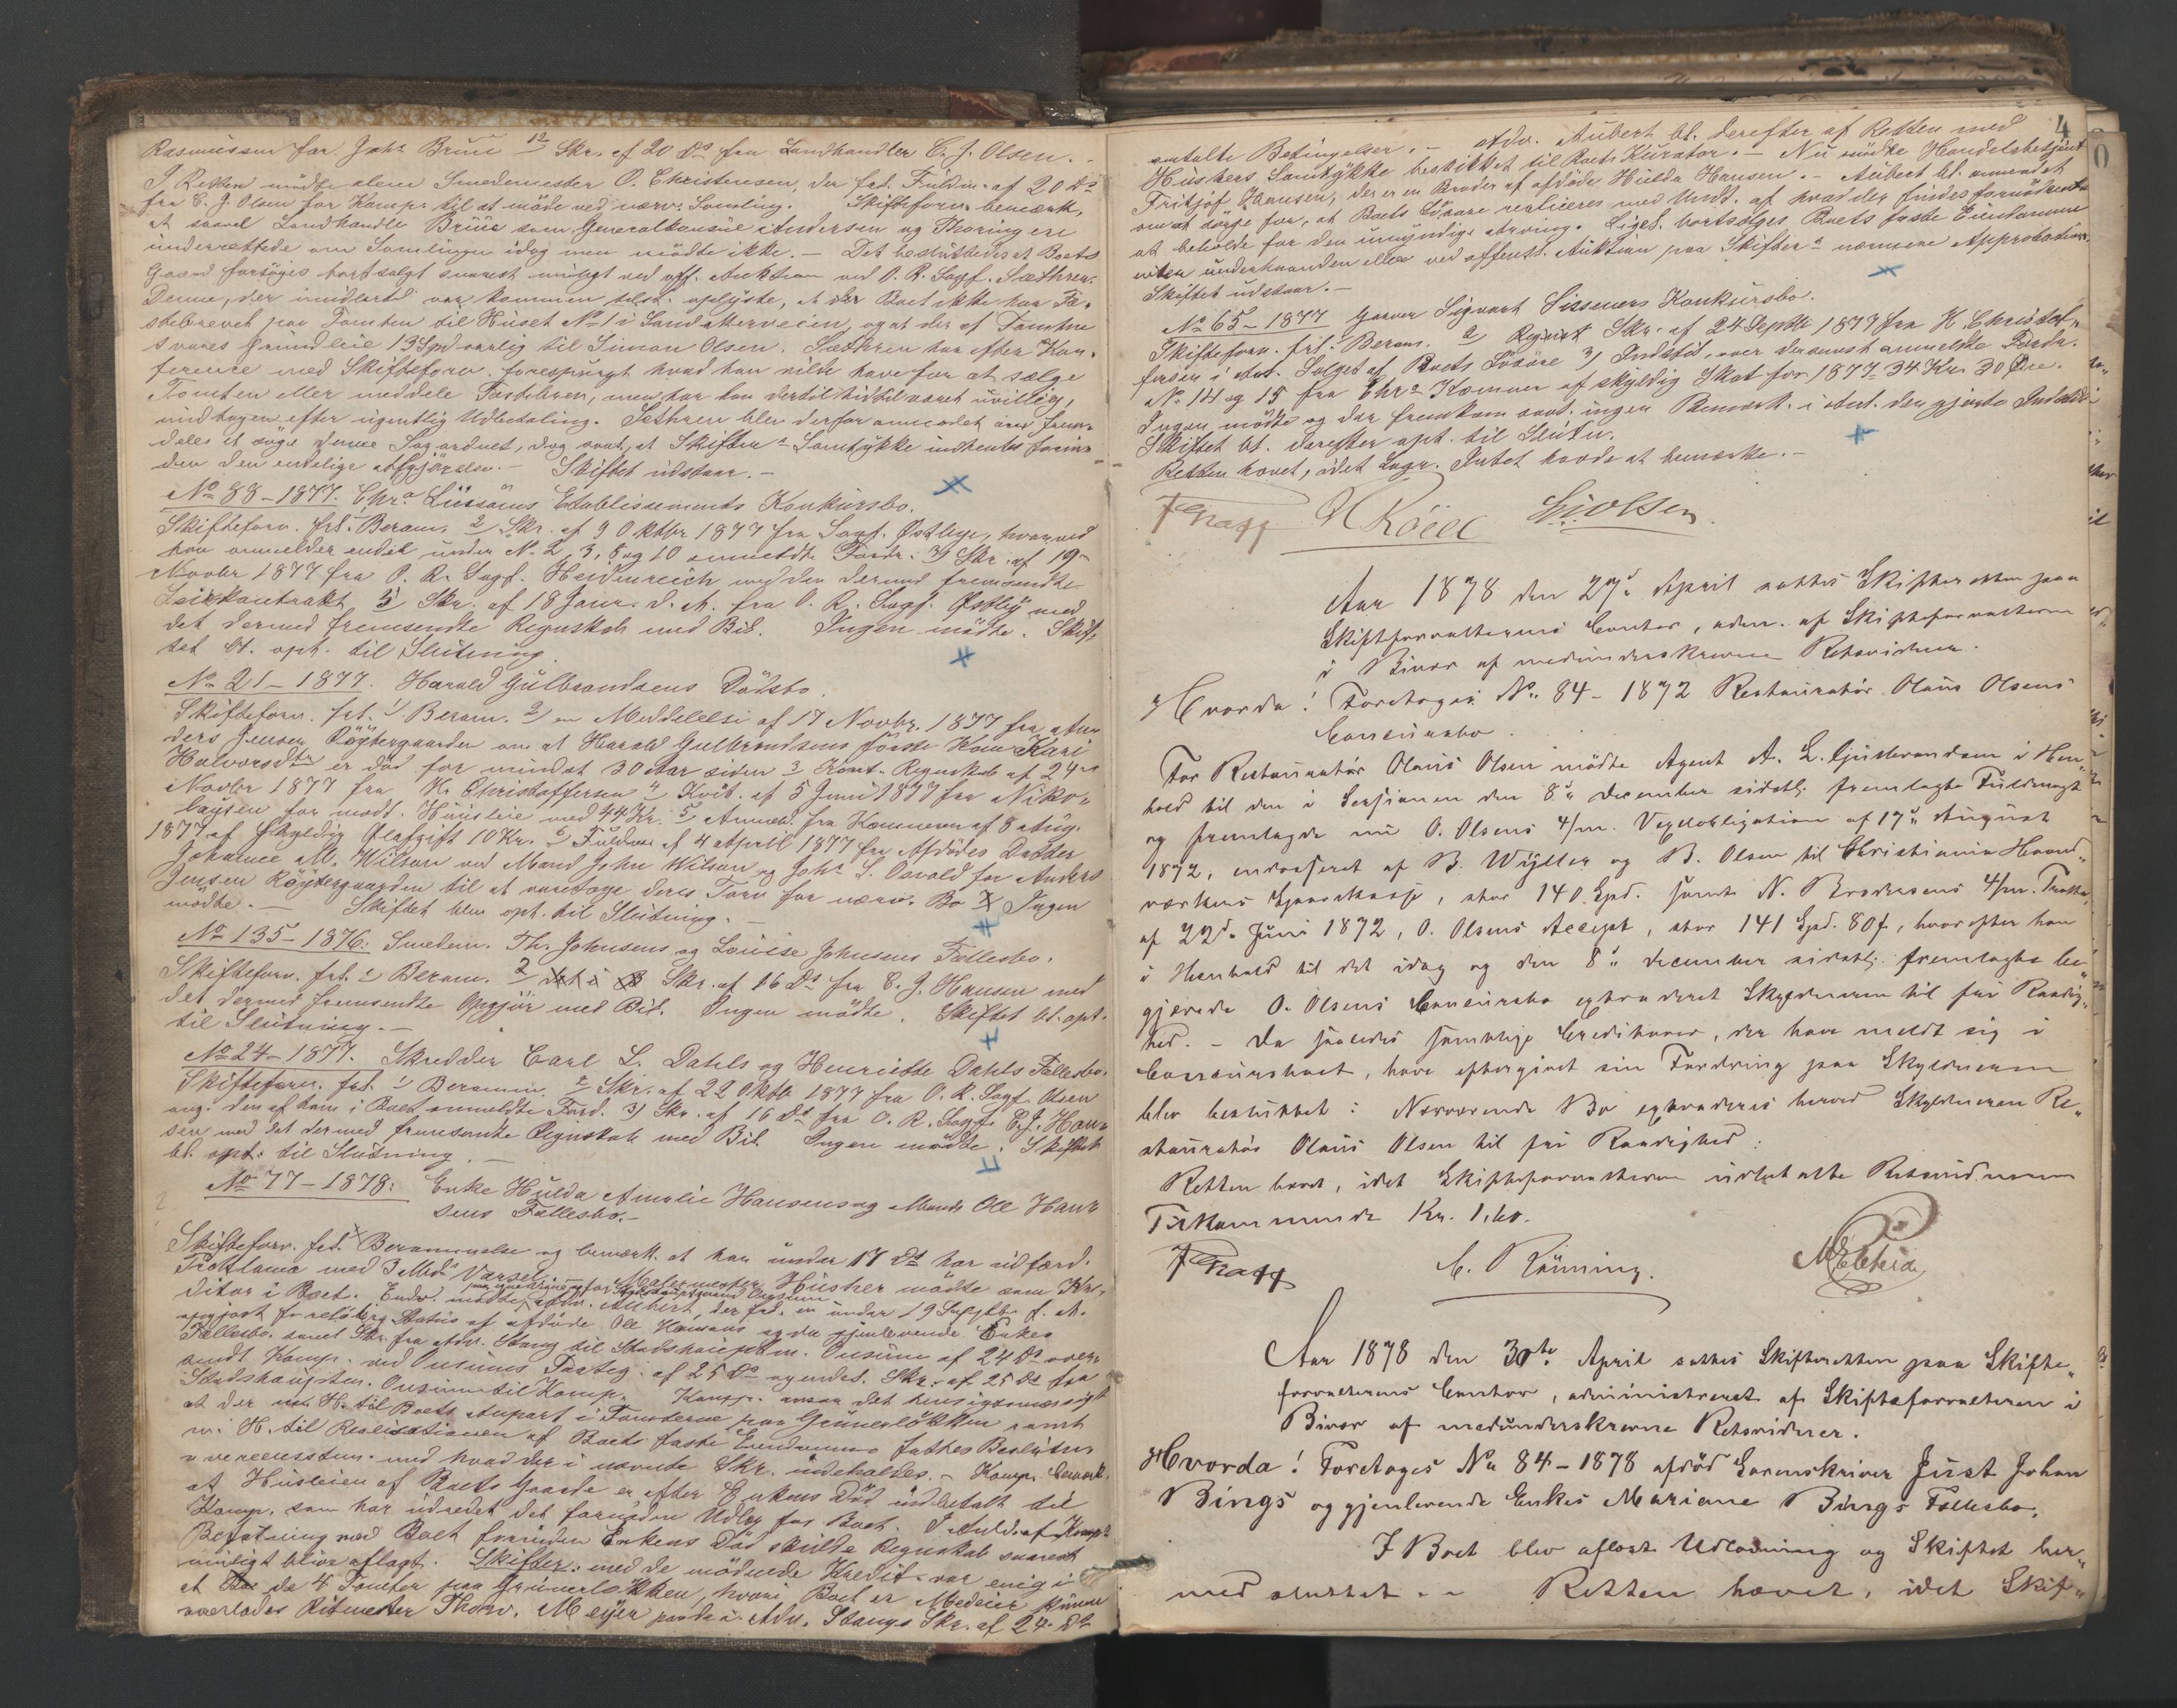 Rasmussen for Johs Bruu 12 Skr. af 20 Ds fra Landhandler C. J. Olsen. -
I Retten mödte alene Smedemester O. Christensen, der frl. Fuldm. af 20 Ds
fra C. J. Olsen for Komp. til at möde ved nærv. Samling. Skifteforv. bemærk.
at saavel Landhandle Bruu som Generalkonsul Andersen og Thoring ere
underrettede om Samlingen idag men mödte ikke. - Det besluttedes at Boets
Gaard forsöges bortsolgt snarest muligt ved off. Auktion ved O. R. Sagf. Sæthren.
Denne, der imidlertid var kommen tilst. oplyste, at der Boet ikke har Fæ-
stebrevet paa Tomten til Huset No 1 i Sandakerveien, og at der af Tomten
svares Grundleie 13 Spd aarlig til Simon Olsen. Sæthren har efter Kon-
ference med Skifteforv. forespurgt hvad han vilde have for at sælge
Tomten eller meddele Fæstebrev, men har han dertil hidtil været uvillig,
undtagen efter ugentlig Udbetaling. Sethren blev derfor anmodet om frem-
deles at söge denne Sag ordnet, dog saal. at Skiftens Samtykke indhentes forin-
den den endelige Afgjörelse. - Skiftet udstaar. -
No 88 - 1877. Chrs Lüssaus Etablissements Konkursbo.
Skifteforv. frl. Beram. 2 Skr. af 9 Oktbr 1877 fra Sagf. Östbye, hvorved
han anmelder endel under No 2, 3, 8 og 10 anmeldte Fordr. 3) Skr. af 19
Novbr 1877 fra O. R. Sagf. Heidenreich med den dermed fremsendte
Leiekontrakt 5 Skr. af 18 Janr. d. A. fra O. R. Sagf. Östby med
det dermed fremsendte Regnskab med Bil. Ingen mödte. Skif-
tet bl. opt. til Slutning.
No 21 - 1877. Harald Gulbrandsens Dödsbo.
Skifteforv. frl. 1) Beram. 2) en Meddelelse af 17 Novbr. 1877 fra An-
ders Jensen Röyter gaarden om at Harald Gulbrandsens förste Kone Kari
Halvorsdtr er död for mindst 30 Aar siden 3 Konst. Regnskab af 24
Novbr 1877 fra H. Christoffersen 4 Kvit. af 5 Juni 1877 fra Niko-
laysen for modt. Husleie med 44 Kr. 5 Anmeld. fra Kæmneren af 8 Aug.
1877 af skyldig Ölafgift 10 Kr. 6 Fuldm af 4 April 1877 fra Afdödes Datter
Johanne M. Wilson ved Mand John Wilson og Johs L. Osvald for Anders
Jensen Röytergaarden til at varetage deres Tarv for nærv. Bo Ingen
mödte. - Skiftet blev opt. til Slutning. -
No 135 - 1876: Smedem. Th. Johnsens og Louise Johnsens Fællesbo.
Skifteforv. frl. 1 Beram. 2 Skr. af 16 Ds fra C. J. Hansen med
det dermed fremsendte Opgjör med Bil. Ingen mödte. Skiftet bl. opt.
til Slutning. -
No 24 - 1877. Skrædder Carl L. Dahls og Henriette Dahls Fællesbo.
Skifteforv. frl. 1) Beramm. 2 Skr. af 22 Oktb 1877 fra O. R. Sagf. Olsen
ang. den af ham i Boet anmeldte Ford. 3) Skr. af 16 Ds fra O. R. Sagf. C. J. Han-
sen med det dermed fremsendte Regnskab med Bil. Ingen mödte. Skiftet
bl. opt. til Slutning. -
No 77 - 1878: Enke Hulda Amalie Hansens og Mand Ole Han-
sens Fællesbo. -
Skifteforv. frl. Berammelse og bemærk. at han under 17 Ds har udfærd.
Proklama med 3 Mdrs Varsel. - Malermester Husher mödte som Kre-
ditor i Boet. Endv. mödte Adv. Aubert, der frl. en under 19 Septbr f. A.
opgjort foreløbig Status af afdöde Ole Hansens og da gjenlevende Enkes
Fællesbo. samt Skr. fra Adv. Stang til Stadshauptm. Onsum af 24 Ds over-
sendt Komp. ved Onsums Paateg. af 25 Ds og endel. Skr. af 25 Ds fra
Stadshauptm. Onsum til Komp. Komp. ansaa det hensigtsmæssigt
at der m. H. til Boets Anpart i Tomterne paa Grünerlökken samt
m. H. til Realisationen af Boets faste Eiendomme fattes Beslutn.
overensstem. med hvad der i nævnte Skr. indeholdes. - Komp. bemærk.
at Husleien af Boets Gaarde er efter Enkens Död indbetalt til
Komp. som har udredet det fornödne Udlæg for Boet. I Anled. af Komp.
Befatning med Boet forinden Enkens Död skulde Regnskab snarest
muligt blive aflagt. Skiftef. med de mödende Kredit. var enig i
at de 4 Tomter paa Grünerlökken, hvori Boet er Medeier kunne
overlades Ritmester Thorv. Meyer paa de i Adv. Stangs Skr. af 24 Ds
4
omtalte Betingelser. - Adv. Aubert bl. derefter af Retten med
Hushers Samtykke beskikket til Boets Kurator. - Nu mödte Handelsbetjent
Fritjof Hansen, der er en Broder af afdöde Hulda Hansen. - Aubert bl. anmodet
om at sörge for, at Boets Lösöre realiseres med Undt. af hvad der findes fornödent
at beholde for den umyndige Arving. Liges. bortsælges Boets faste Eiendomme
enten underhaanden eller ved offentl. Auktion paa Skiftens nærmere Approbation.
Skiftet udstaar. -
No 65 - 1877 Garver Sigvart Sisseners Konkursbo.
Skifteforv. frl. 1 Beram. 2) Skr. af 24 Septbr 1877 fra H. Christof-
fersen i Anl. Salget af Boets Lösöre 3) Indstil. over de senest anmeldte Fordr.
No 14 og 15 fra Chra Kæmner af skyldig Skat for 1877 - 34 Kr. 30 Öre.
Ingen mödte og der fremkom saal. ingen Bemærk. i Anl. den gjorte Indstill.
Skiftet bl. derefter opt. til Slutn.
Retten hævet, idet Lagr. Intet havde at bemærke. -
Olsen
Aar 1878 den 27de April sattes Skifteretten paa
Skifteforvalterens Contor, adm. af Skifteforvalteren
i Bivær af medunderskrevne Retsvidner.
Hvorda! Foretoges No 84 - 1872 Restauratör Olaus Olsens
Concursbo.
For Restauratör Olaus Olsen mödte Agent A. L. Gulbrandsen i Hen-
hold til den i Sessionen den 8de December sidstl. fremlagte Fuldmagt
og fremlagde nu O. Olsens 4/m. Vexelobligation af 17de August
1872, endosseret af B. Wyller og B. Olsen til Christiania Haand-
værkeres Sparekasse, stor 140 Spd. samt N. Brodersens 4/m. Tratte
af 22de Juni 1872, O. Olsens Accept, stor 141 Spd. 80 f, hvorefter han
i Henhold til det idag og den 8de December sidstl. fremlagte be-
gjærede O. Olsens Concursbo extraderet Skyldneren til fri Raadig-
hed. - Da saaledes samtlige Creditorer, der have meldt sig i
Concursboet, have eftergivet sin Fordring paa Skyldneren
blev besluttet: Nærværende Bo extraderes herved Skyldneren Re-
stauratör Olaus Olsen til fri Raadighed.
Retten hævet, idet Skifteforvalteren udbetalte Retsvidnerne
Tilkommende Kr. 1,60.
C. Rönning.
Aar 1878 den 30te April sattes Skifteretten paa Skifte-
forvalterens Contor, administreret af Skifteforvalteren i
Bivær af medunderskrevne Retsvidner.
Hvorda! Foretoges No 84 - 1878 afdöd Sorenskriver Just Johan
Bings og gjenlevende Enkes Mariane Bings Fællesbo.
I Boet blev aflagt Udlodning og Skiftet her-
med sluttet. - Retten hævet, idet Skif-